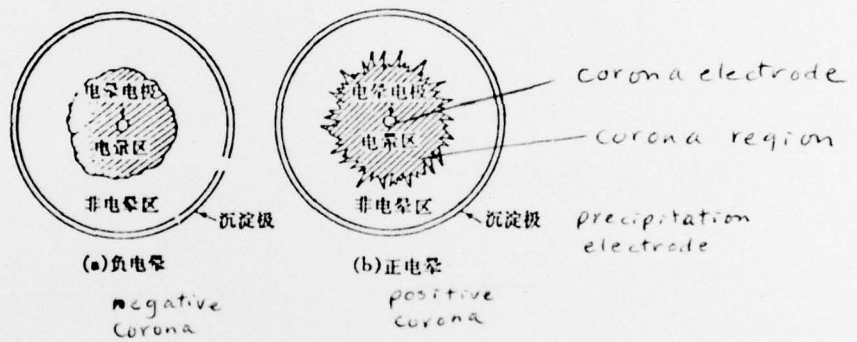 电晕电极
电晕区
非电晕区
沉淀极
(a)负电晕
negative
corona
电晕电极
电晕区
非电晕区
沉淀极
(b)正电晕
positive
corona
corona electrode
corona region
precipitation
electrode